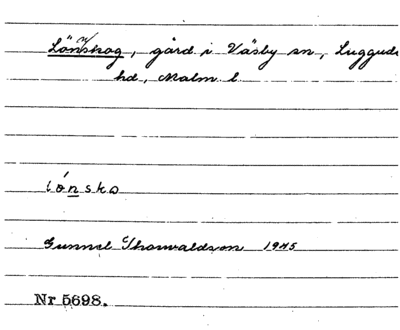 Lönskog, gård i Väsby sn, Luggude
hd, Malm. l.
lönsko
Gunnel Thorwaldson 1945
Nr 5698.